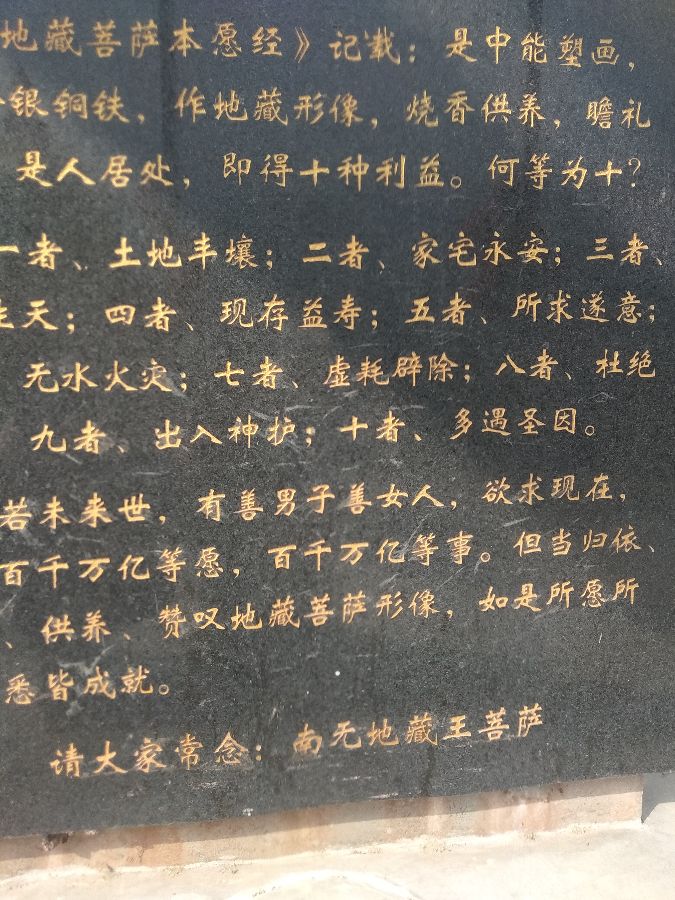 地藏菩萨本愿经》记载：是中能塑画，
银铜铁，作地藏形像，烧香供养，瞻礼
是人居处，即得十种利益。何等为十？
一者、土地丰壤；二者、家宅永安；三者、
生天；四者、现存益寿；五者、所求遂意；
无水火灾；七者、虚耗辟除；八者、杜绝
九者、出入神护；十者、多遇圣因。
若未来世，有善男子善女人，欲求现在，
百千万亿等愿，百千万亿等事。但当归依、
、供养、赞叹地藏菩萨形像，如是所愿所
悉皆成就。
请大家常念：南无地藏王菩萨